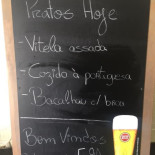 Pratos Hoje
- Vitela assada
- Cozido à portuguesa
- Bacalhau c/ broa
Bem Vindos